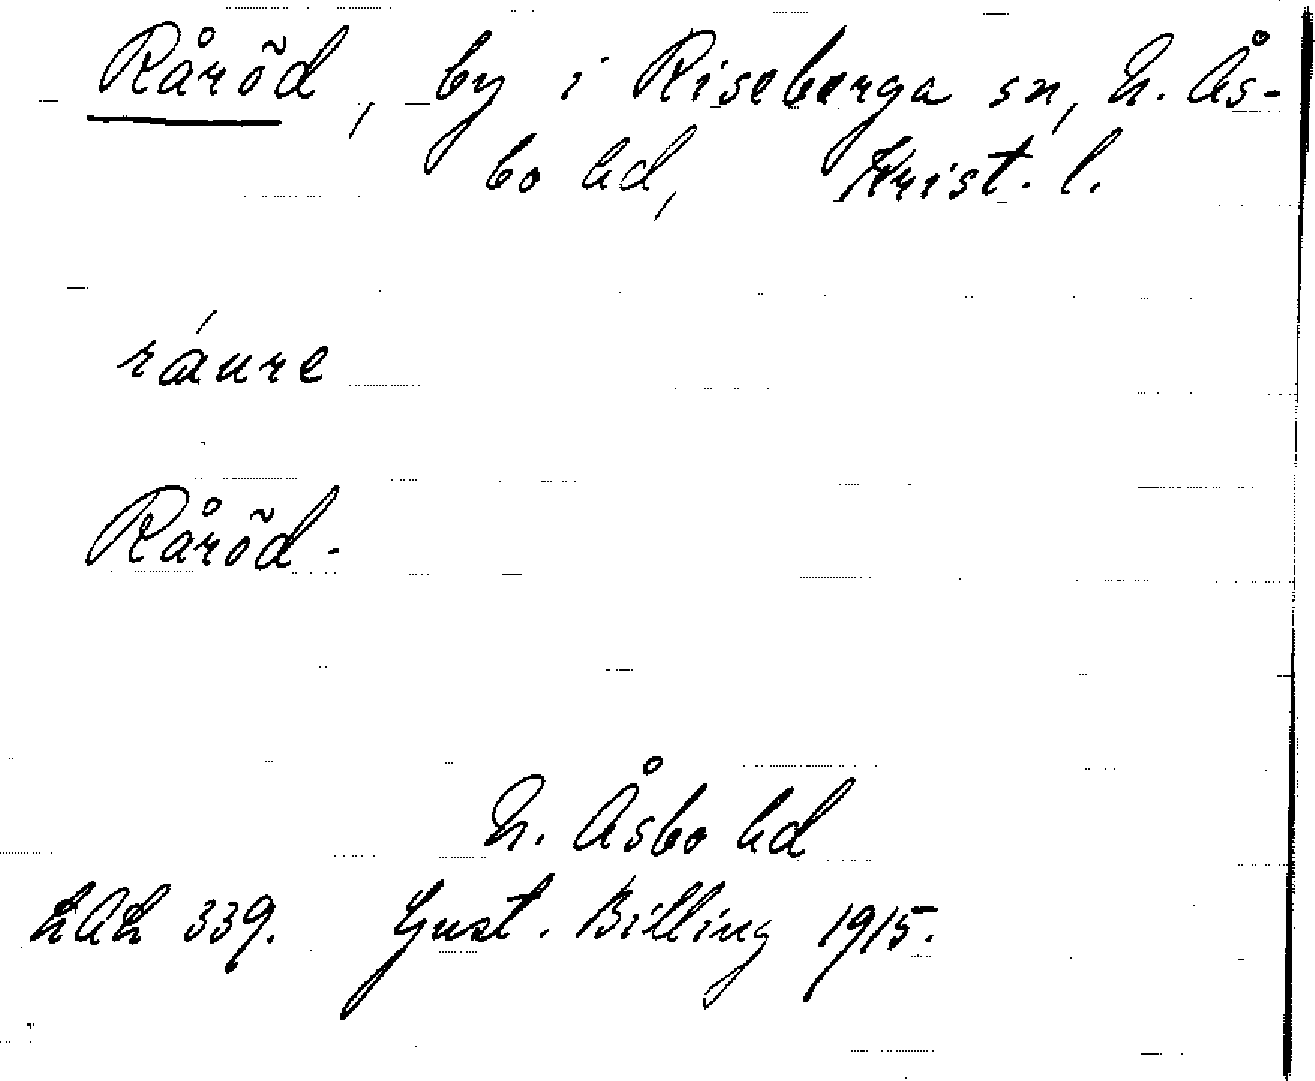 Råröd, by i Riseberga sn, N. Ås-
bo hd, Krist. l.
ráure
Råröd.
N. Åsbo hd
LAL 339. Gust. Billing 1915.